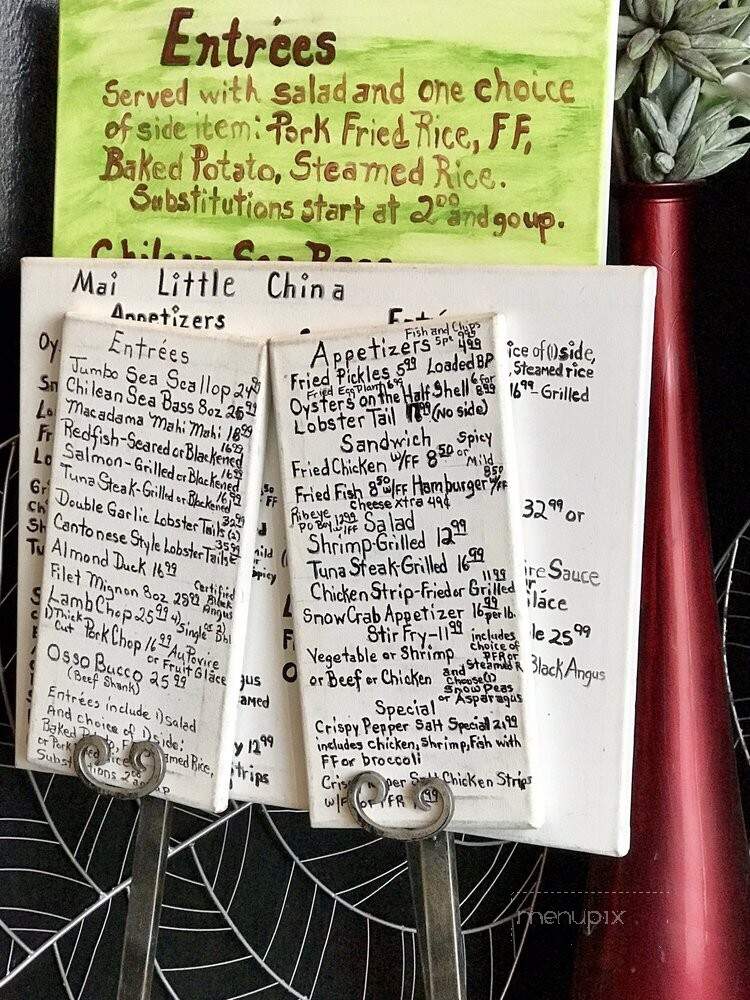 Entrées
Served with salad and one choice
of side item: Pork Fried Rice, FF,
Baked Potato, Steamed Rice.
Substitutions start at 2⁰⁰ and go up.
Chilean Sea Bass
Mai Little China
Appetizers
Entrées
Jumbo Sea Scallop 24⁹⁹
Chilean Sea Bass 8oz 26⁹⁹
Macadama Mahi Mahi 18⁹⁹
Redfish-Seared or Blackened 16⁹⁹
Salmon-Grilled or Blackened 16⁹⁹
Tuna Steak-Grilled or Blackened 16⁹⁹
Double Garlic Lobster Tails (2) 32⁹⁹
Cantonese Style Lobster Tails 35⁹⁹
Almond Duck 16⁹⁹
Filet Mignon 8oz 28⁹⁹ Certified Black Angus
Lamb Chop 25⁹⁹ 4) Single or 2) Dbl
1) Thick Cut Pork Chop 16⁹⁹ Au Povire
or Fruit Glace
Osso Bucco 25⁹⁹
(Beef Shank)
Entrées include 1) salad
And choice of 1) side:
Fish and Chips
5pc 9⁹⁹
Appetizers 4⁹⁹
Fried Pickles 5⁹⁹ Loaded BP
Fried Egg Plant 6⁹⁹
Oysters on the Half Shell 6 for 8⁹⁹
Lobster Tail (No side)
Sandwich
Spicy
Fried Chicken w/FF 8⁵⁰ or Mild
Fried Fish 8⁵⁰ w/FF Hamburger w/FF 8⁵⁰
cheese xtra 49¢
Ribeye
Po Boy 12⁹⁹ w/FF
Salad
Shrimp-Grilled 12⁹⁹
Tuna Steak-Grilled 16⁹⁹
Chicken Strip-Fried or Grilled 11⁹⁹
Snow Crab Appetizer 16⁹⁹ per lb.
Stir Fry-11⁹⁹
Vegetable or Shrimp
or Beef or Chicken
includes
choice of
PFR or
Steamed R
and
choose(1)
Snow Peas
or Asparagus
Special
Crispy Pepper Salt Special 21⁹⁹
includes chicken, Shrimp, Fish with
FF or broccoli
Salt Chicken Strips
ice of (1) side,
, Steamed rice
16⁹⁹-Grilled
32⁹⁹ or
ire Sauce
25⁹⁹
Black Angus
12⁹⁹
menupix